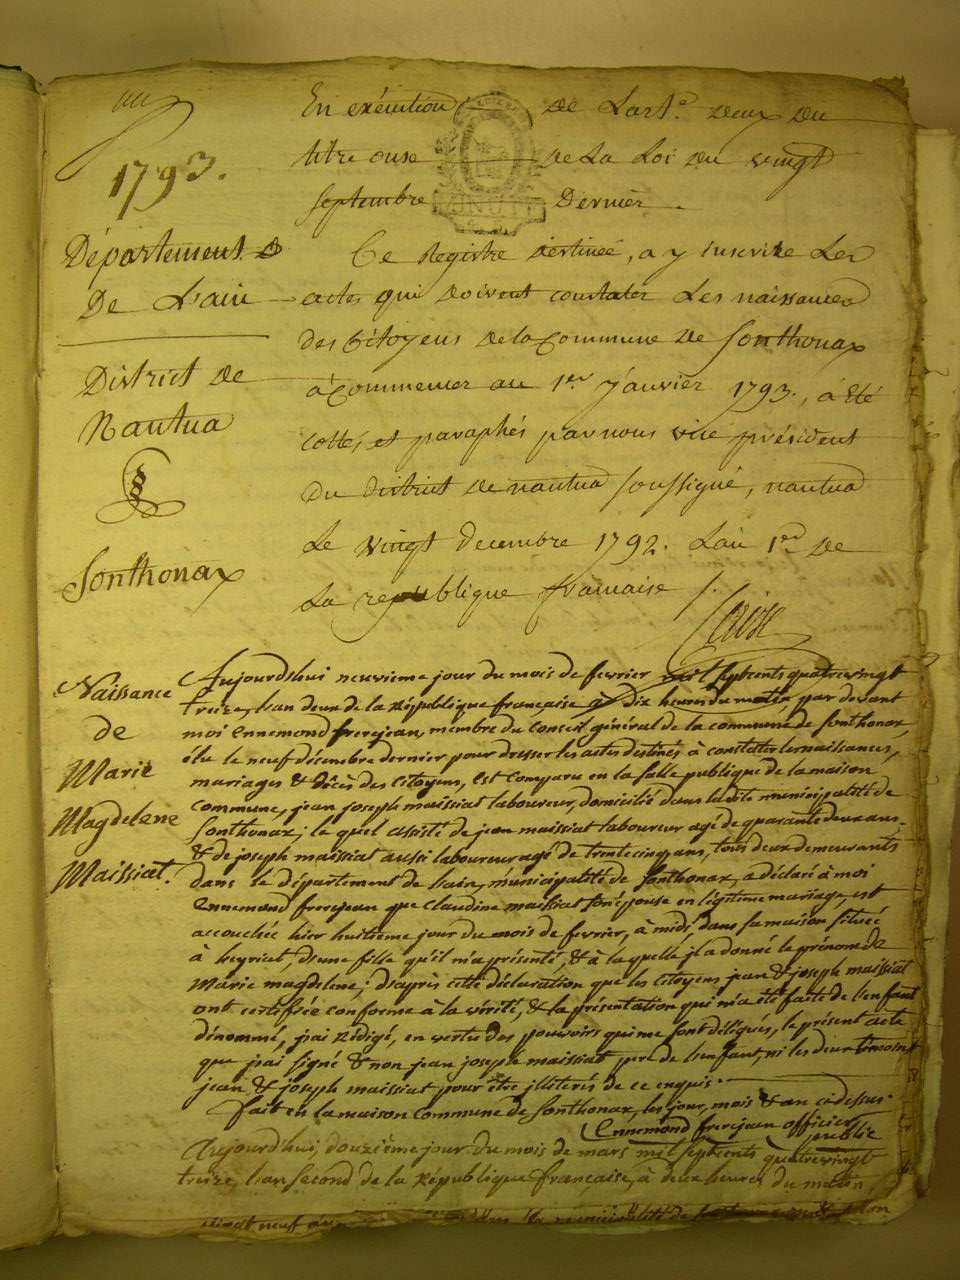 1793.
Département
De L'ain
District de
Nantua
Sonthonax
En exécution de L'art.e deux du
titre onse de La Loi du vingt
septembre Dernier.
MINUTE
Ce Registre destinée, a y inscrire Les
actes qui doivent constater Les naissances
des Citoyens de la Commune de Sonthonax
à Commencer au 1er Janvier 1793., a été
cotté, et paraphés par nous vice président
du district de nantua soussigné, nantua
Le vingt Decembre 1792. L'an 1er de
La republique francaise /.
Naissance
de
Marie
Magdelene
Maissiat.
Aujourdhui neuvieme jour du mois de fevrier mil septcents quatrevingt
treize, l'an deux de la République française à dix heures du matin, par devant
moi Ennemond frerejean, membre du Conseil général de la commune de Sonthonax,
élu le neuf décembre dernier pour dresser les actes destinés à constater les naissances,
mariages & décès des Citoyens, est comparu en la salle publique de la maison
commune, jean joseph maissiat laboureur, domicilié dans ladite municipalité de
Sonthonax; le quel assisté de jean maissiat laboureur agé de quarante deux ans.
& de joseph maissiat aussi laboureur agé de trente cinq ans, tous deux demeurants
dans le département de L'ain, municipalité de Sonthonax, a déclaré à moi
Ennemond frerejean que Claudine maissiat son épouse en légitime mariage, est
accouchée hier huitieme jour du mois de fevrier, à midi, dans sa maison située
à heyriat, d'une fille qu'il m'a présenté, & à laquelle il a donné le prénom de
Marie magdelene; d'après cette déclaration que les Citoyens jean & joseph maissiat
ont certifiée conforme à la vérité, & la présentation qui m'a été faite de l'enfant
dénommé, j'ai rédigé, en vertu des pouvoirs qui me sont délégués, le présent acte
que j'ai signé & non jean joseph maissiat pere de l'enfant, ni les deux témoins
jean & joseph maissiat pour être illiterés de ce enquis.
fait en la maison Commune de Sonthonax, les jour, mois & an ci-dessus.
Ennemond frerejean officier
public
Aujourdhui, douzième jour du mois de mars mil septcents quatrevingt
treize, l'an second de la République française, à deux heures du matin